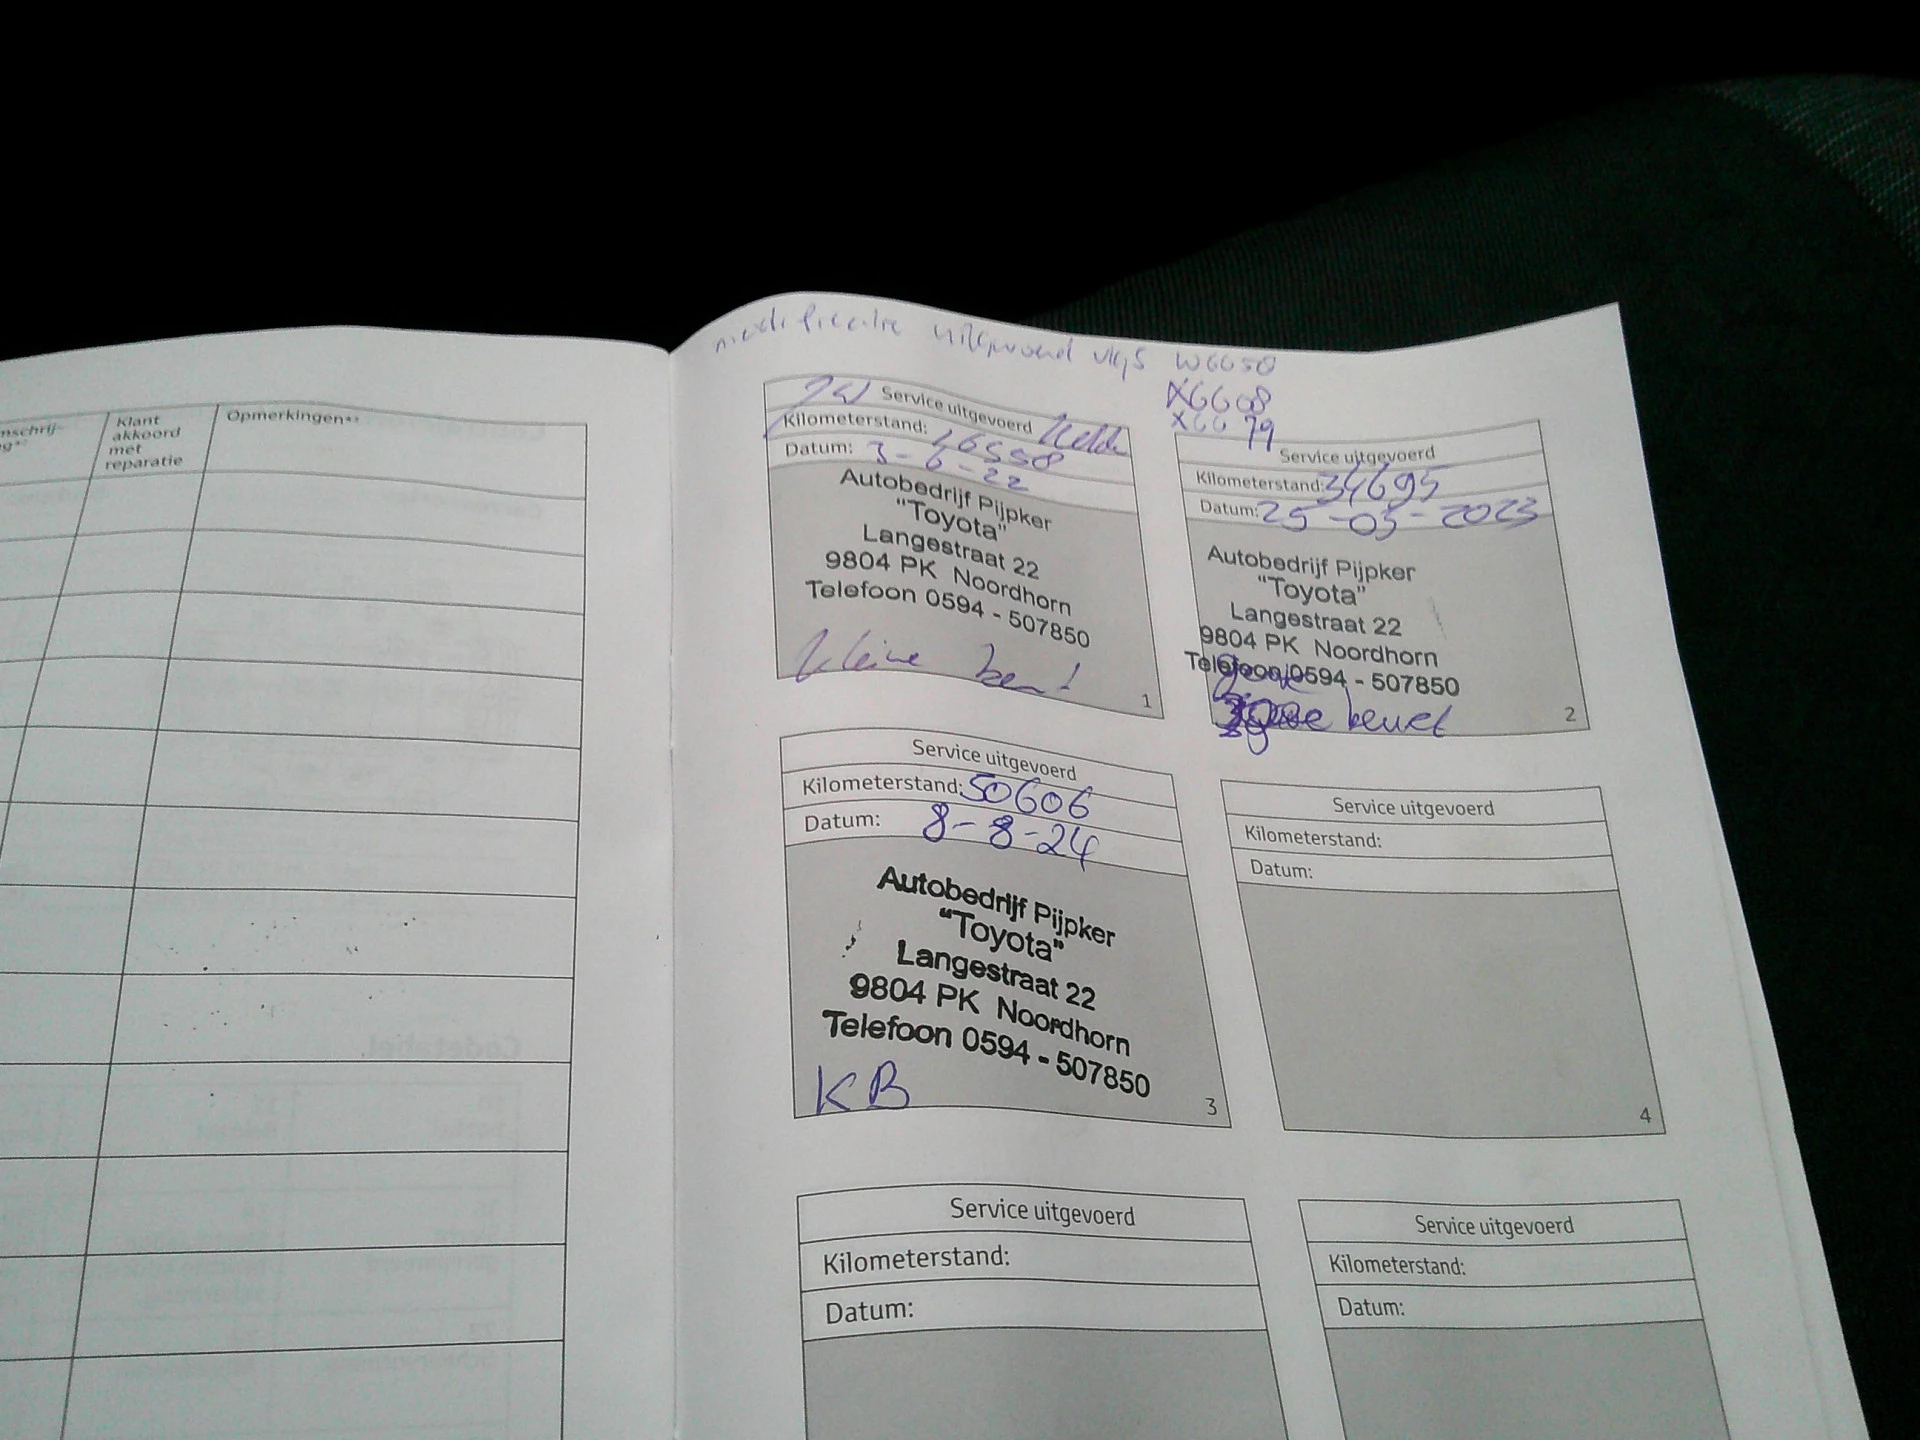 nschrij-
g*²
Klant
akkoord
met
reparatie
Opmerkingen*³
modificatie uitgevoerd vlgs W6G50
XGG08
XGG79
Service uitgevoerd
Kilometerstand: 16558
Datum: 3-6-22
Autobedrijf Pijpker
"Toyota"
Langestraat 22
9804 PK Noordhorn
Telefoon 0594 - 507850
kleine beurt
1
Service uitgevoerd
Kilometerstand: 34695
Datum: 25-05-2023
Autobedrijf Pijpker
"Toyota"
Langestraat 22
9804 PK Noordhorn
Telefoon 0594 - 507850
beurt
2
Service uitgevoerd
Kilometerstand: 50606
Datum: 8-8-24
Autobedrijf Pijpker
"Toyota"
Langestraat 22
9804 PK Noordhorn
Telefoon 0594 - 507850
KB
3
Service uitgevoerd
Kilometerstand:
Datum:
4
Service uitgevoerd
Kilometerstand:
Datum:
Service uitgevoerd
Kilometerstand:
Datum: